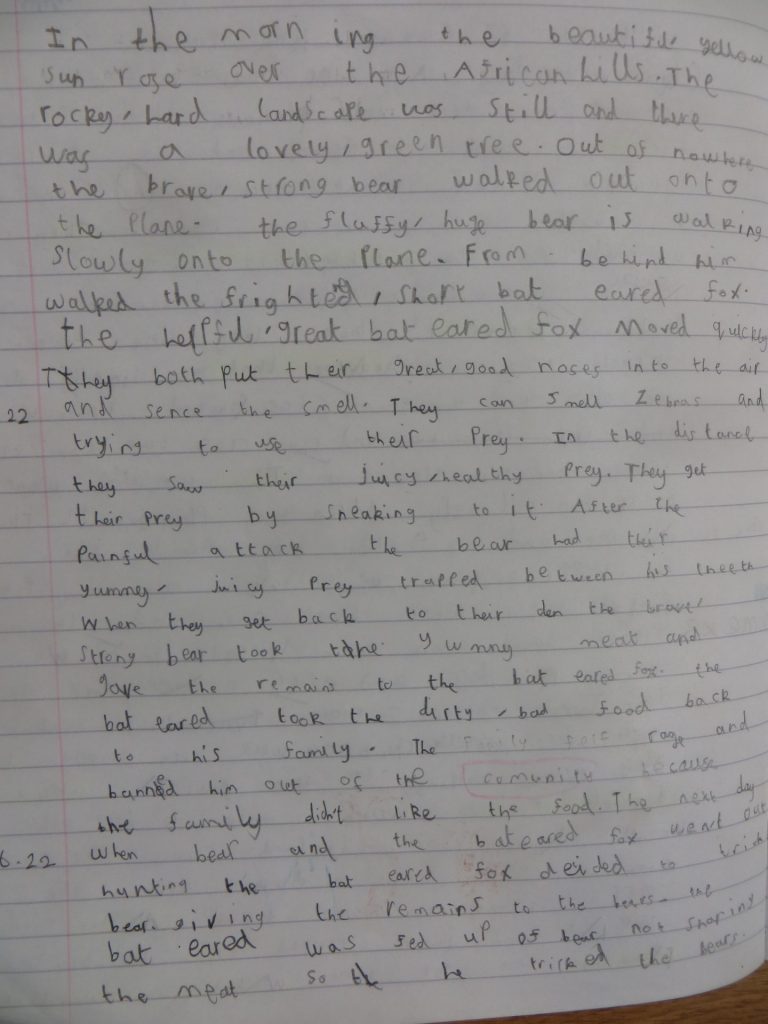 In the morn ing the beautiful yellow
sun rose over the African hills. The
rocky, hard landscape was still and there
was a lovely, green tree. Out of nowhere
the brave, strong bear walked out onto
the Plane. the fluffy, huge bear is walking
slowly onto the Plane. From behind him
walked the frightned, short bat eared fox.
the helpful, great bat eared fox moved quickly
They both put their great, good noses into the air
22 and sence the smell. They can smell Zebras and
trying to use their Prey. In the distance
they saw their juicy, healthy Prey. They get
their prey by sneaking to it. After the
Painful attack the bear had their
yummey, juicy Prey trapped between his theeth
When they get back to their den the brave,
strong bear took the yummy meat and
gave the remains to the bat eared fox. the
bat eared took the dirty, bad food back
to his family. The family rage and
banned him out of the comunity because
the family didn't like the food. The next day
6.22 when bear and the bat eared fox went out
hunting the bat eared fox deided to trick
bear. giving the remains to the bears. the
bat eared was fed up of bear not sharing
the meat so he tricked the bears.